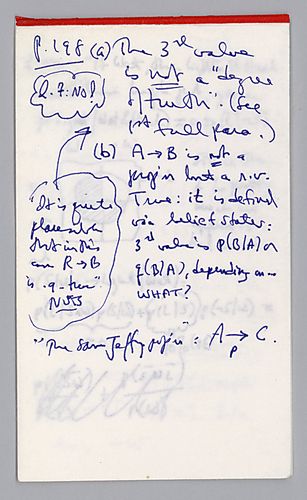 p. 198 (a) The 3rd value
is not a "degree
of truth". (See
1st full para.)
R. J. No!
(b) A → B is not a
prop'n but a r.v.
True: it is defined
via belief states:
3rd value is p(B/A) or
q(B/A), depending on —
WHAT?
"It is quite
plausible
that in this
case R → B
is ... true"
NUTS
"The same Jeffprop'n": A → C.
P